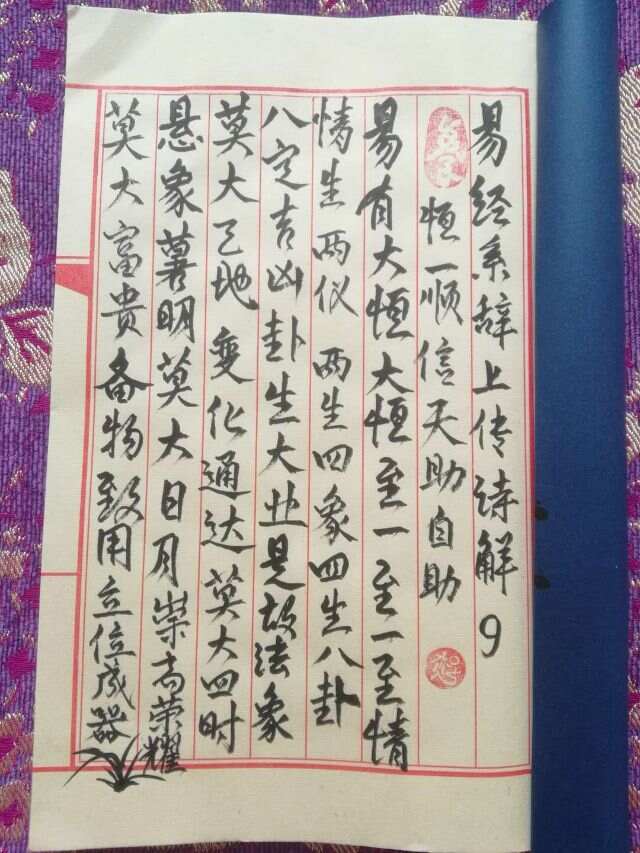 易经系辞上传诗解9
恒一顺信天助自助
易有大恒大恒至一至一至情
情生两仪 两生四象四生八卦
八定吉凶卦生大业是故法象
莫大天地 变化通达 莫大四时
悬象著明莫大日月崇高荣耀
莫大富贵备物致用立位成器